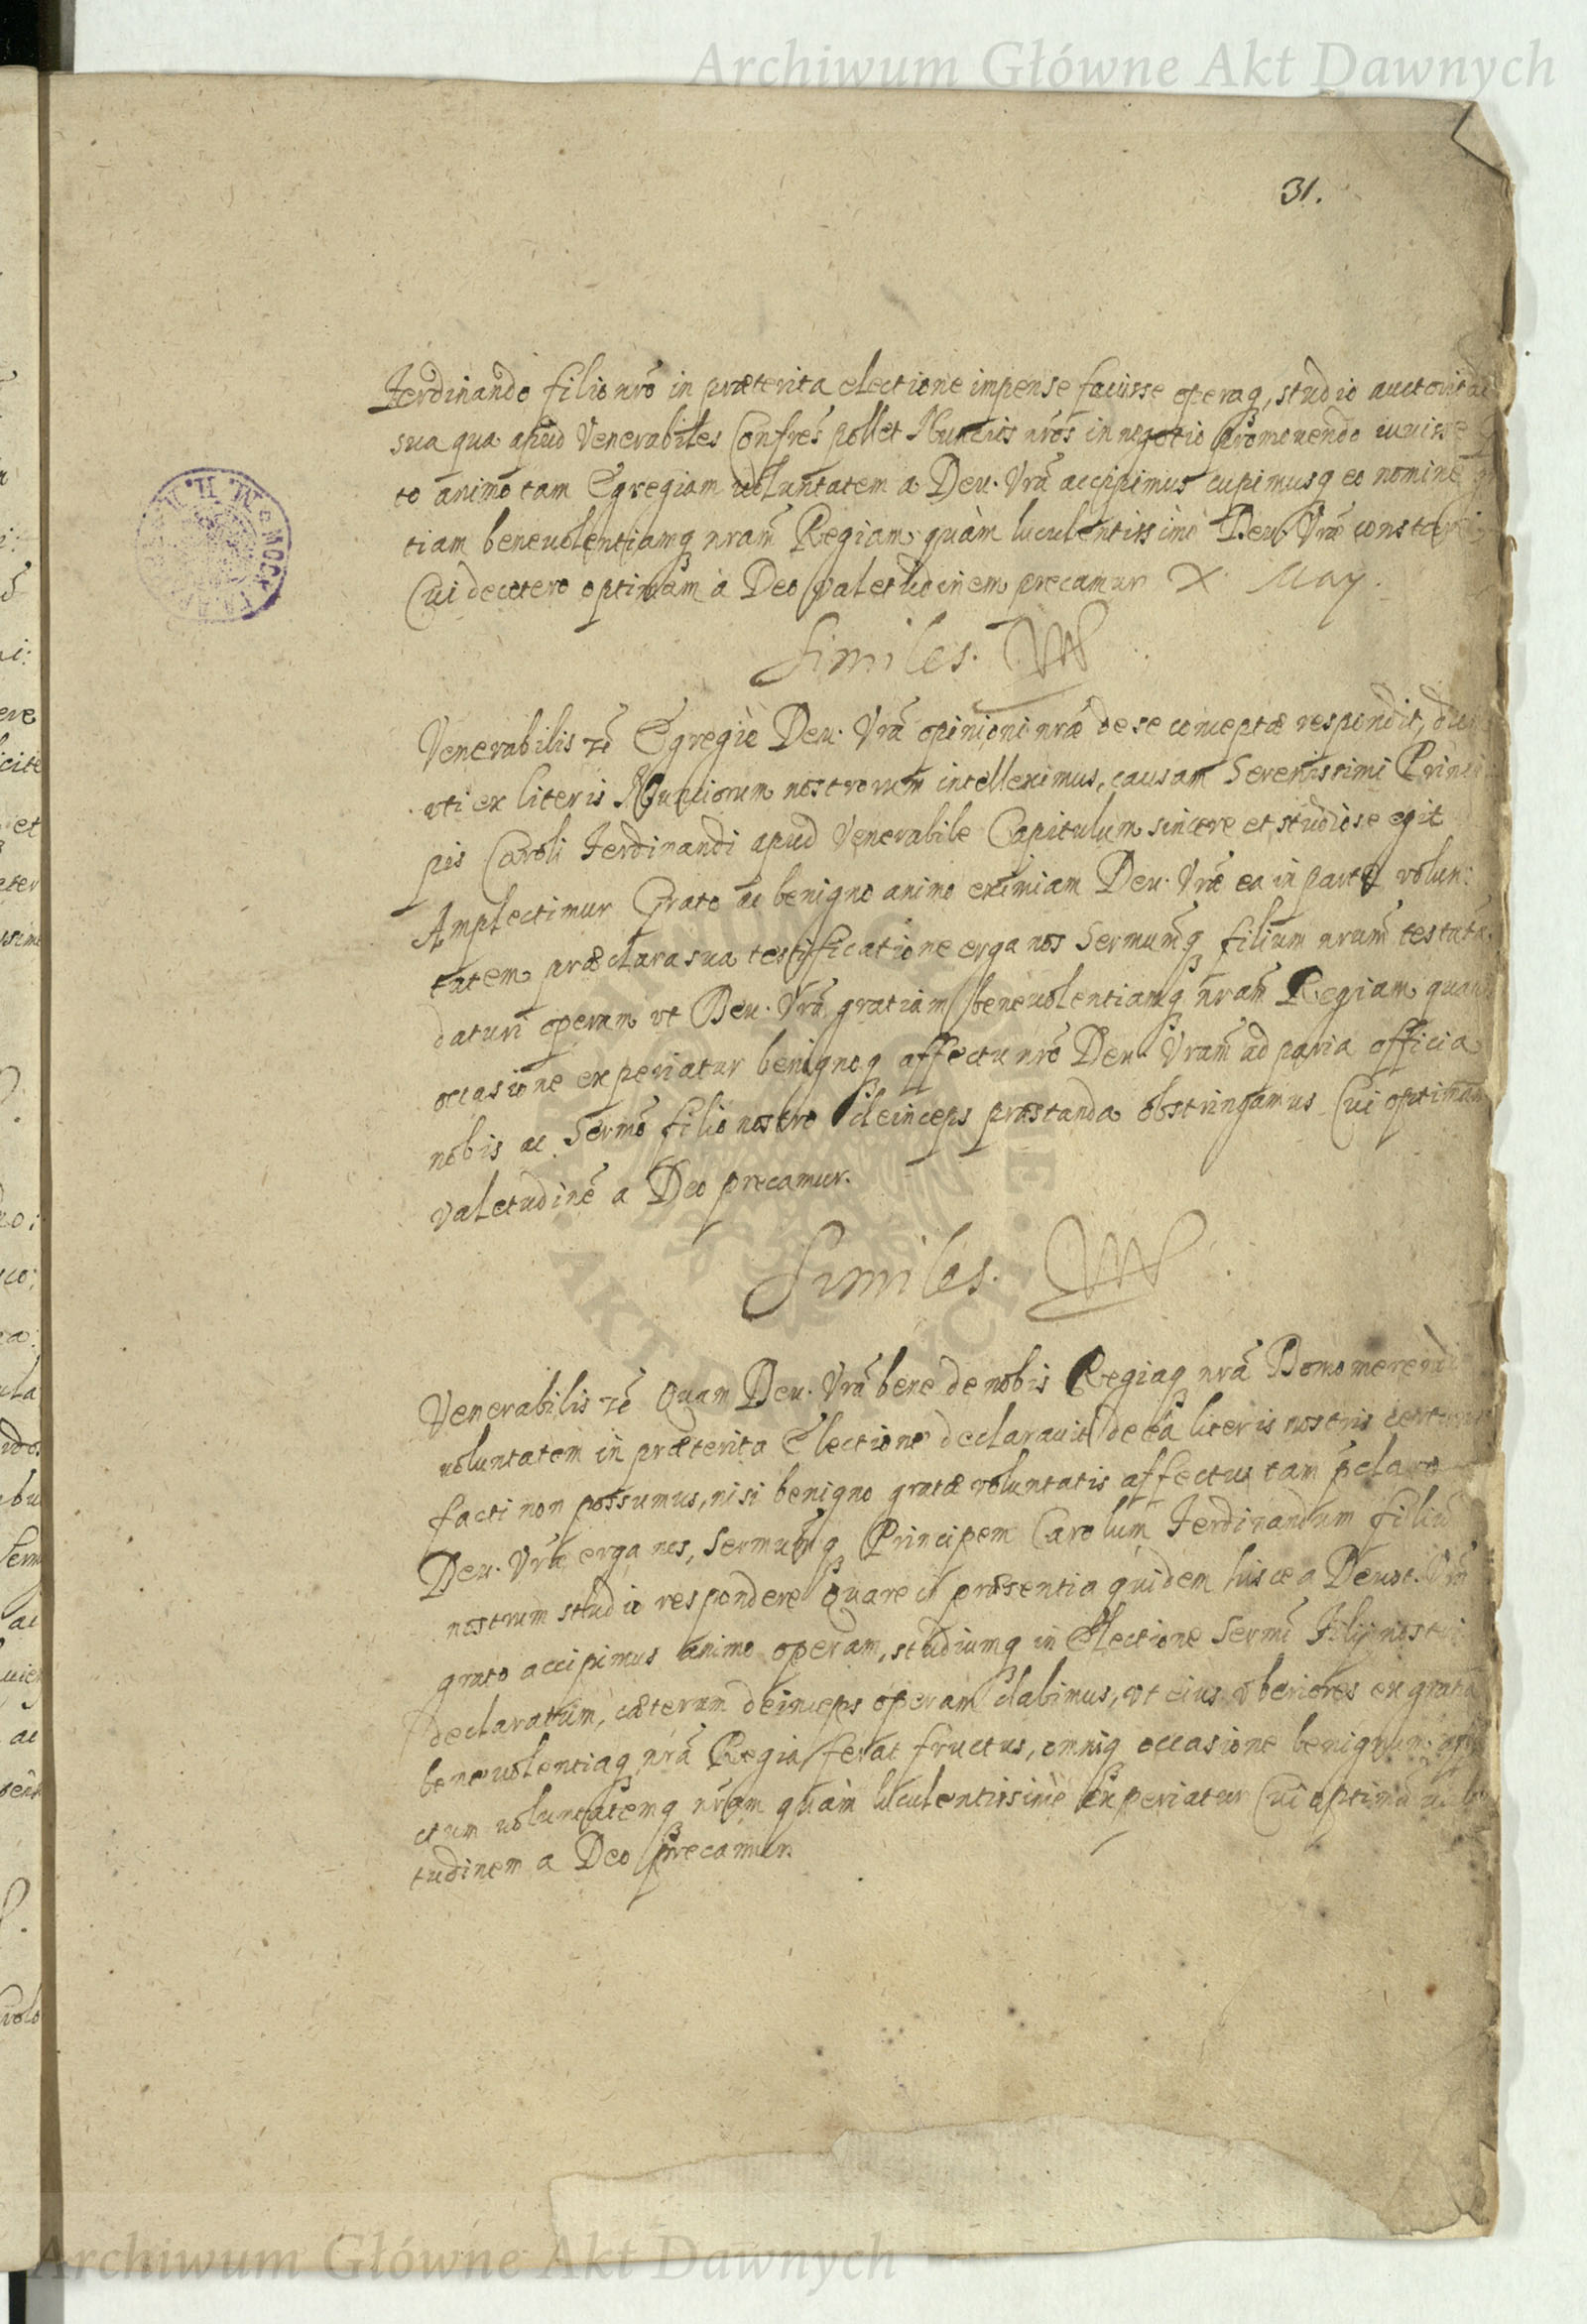 Archiwum Główne Akt Dawnych
31.
Ferdinando filio nr̃o in præterita electione impense fauisse operaq, studio auctoritate
sua qua apud Venerabiles Confres pollet Nuncios nr̃os in negotio promouendo iuuisse
to animo tam Egregiam uoluntatem a Deu. Vr̃a accipimus cupimusq eo nomine
tiam beneuolentiamq nram̃ Regiam quàm luculentissimè Deu. Vræ constare
Cui decetero optimam à Deo valetudinem precamur X May.
Similes.
Venerabilis Egregiè Deu. Vr̃a opinioni nr̃æ de se conceptæ respondit, dum
uti ex literis Nunciorum nostrorum intelleximus, causam Serenissimi Princi
pis Caroli Ferdinandi apud Venerabile Capitulum sincere et studiose egit
Amplectimur Grato ac benigno animo eximiam Deu. Vr̃æ ea in parte volun:
tatem præclara sua testificatione erga nos Sermumq̃ filium nrum̃ testatã
daturi operam ut Deu. Vr̃a gratiam beneuolentiamq nram̃ Regiam quauis
occasione experiatur benignoq affectu nr̃o Deu. Vram̃ ad paria officia
nobis ac Sermõ filio nostro deinceps præstanda obstringamus Cui optimam
valetudinẽ a Deo precamur.
Similes.
Venerabilis Quam Deu. Vr̃a bene de nobis Regiaq nr̃a Domo merendi
uoluntatem in præterita Electione declarauit de ea literis nostris
facti non possumus, nisi benigno gratæ voluntatis affectu tam p̃claro
Deu. Vr̃æ erga nos, Sermumq̃ Principem Carolum Ferdinandum filiũ
nostrum studio respondere Quare præsentia quidem hisce a Deuot. Vr̃a
grato accipimus animo operam, studiumq in Electione Sermi Filij nostri
declaratum, cæterum deinceps operam dabimus, ut eius uberiores ex grata
beneuolentiaq nr̃a Regia ferat fructus, omniq occasione benignum affe
ctum uoluntatemq nr̃am quàm luculentissimè experiatur Cui optimã uale
tudinem a Deo precamur
Archiwum Główne Akt Dawnych